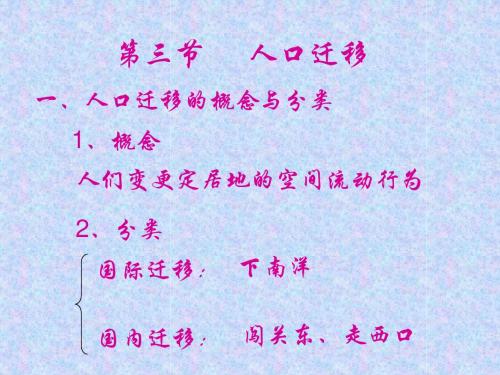 第三节 人口迁移
一、人口迁移的概念与分类
1、概念
人们变更定居地的空间流动行为
2、分类
国际迁移： 下南洋
国内迁移： 闯关东、走西口